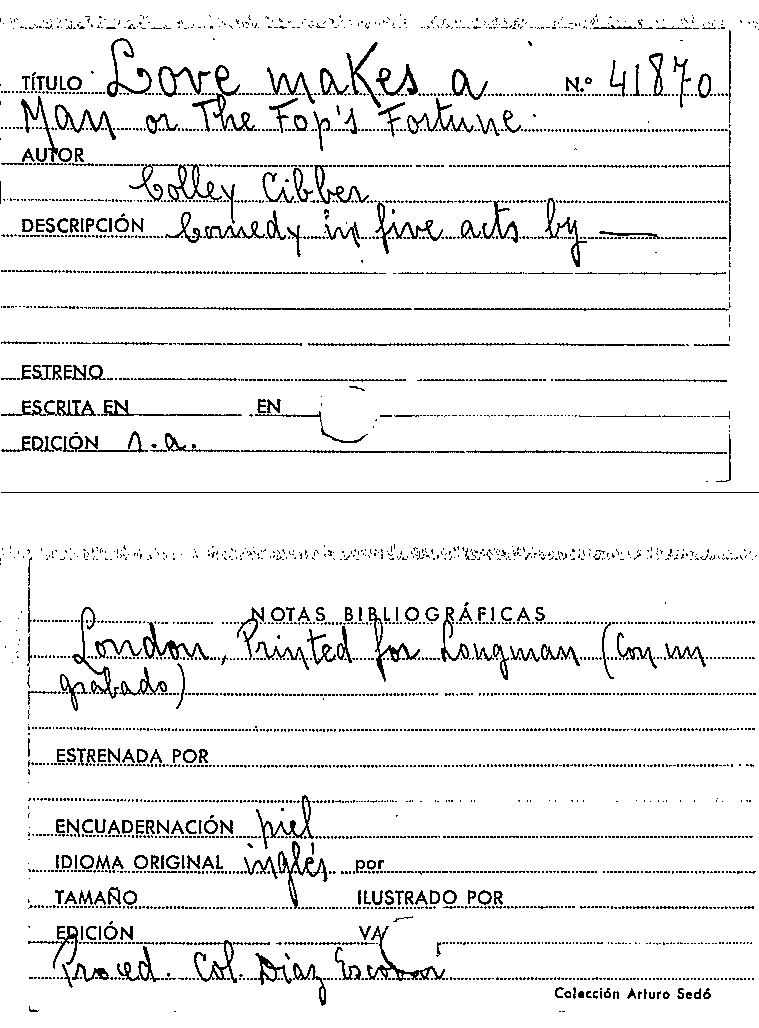 TÍTULO Love makes a N.º 41870
Man or The Fop's Fortune.
AUTOR
Colley Cibber
DESCRIPCIÓN Comedy in five acts by —
ESTRENO
ESCRITA EN EN
EDICIÓN s.a.
NOTAS BIBLIOGRÁFICAS
London, Printed for Longman (Con un
grabado)
ESTRENADA POR
ENCUADERNACIÓN piel
IDIOMA ORIGINAL inglés por
TAMAÑO ILUSTRADO POR
EDICIÓN VA
Proced. Col. Díaz Escobar
Colección Arturo Sedó